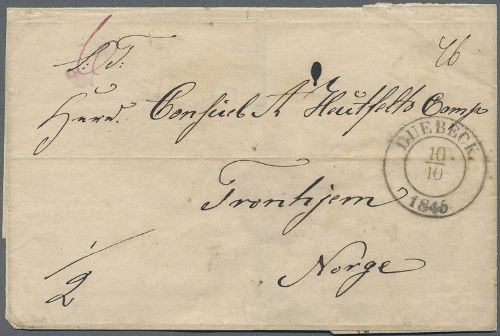 S: T:
46
Herrd. Consul A Huitfeldt Comp
Tronhjem
Norge
1/2
DUEBECK
10
10
1846